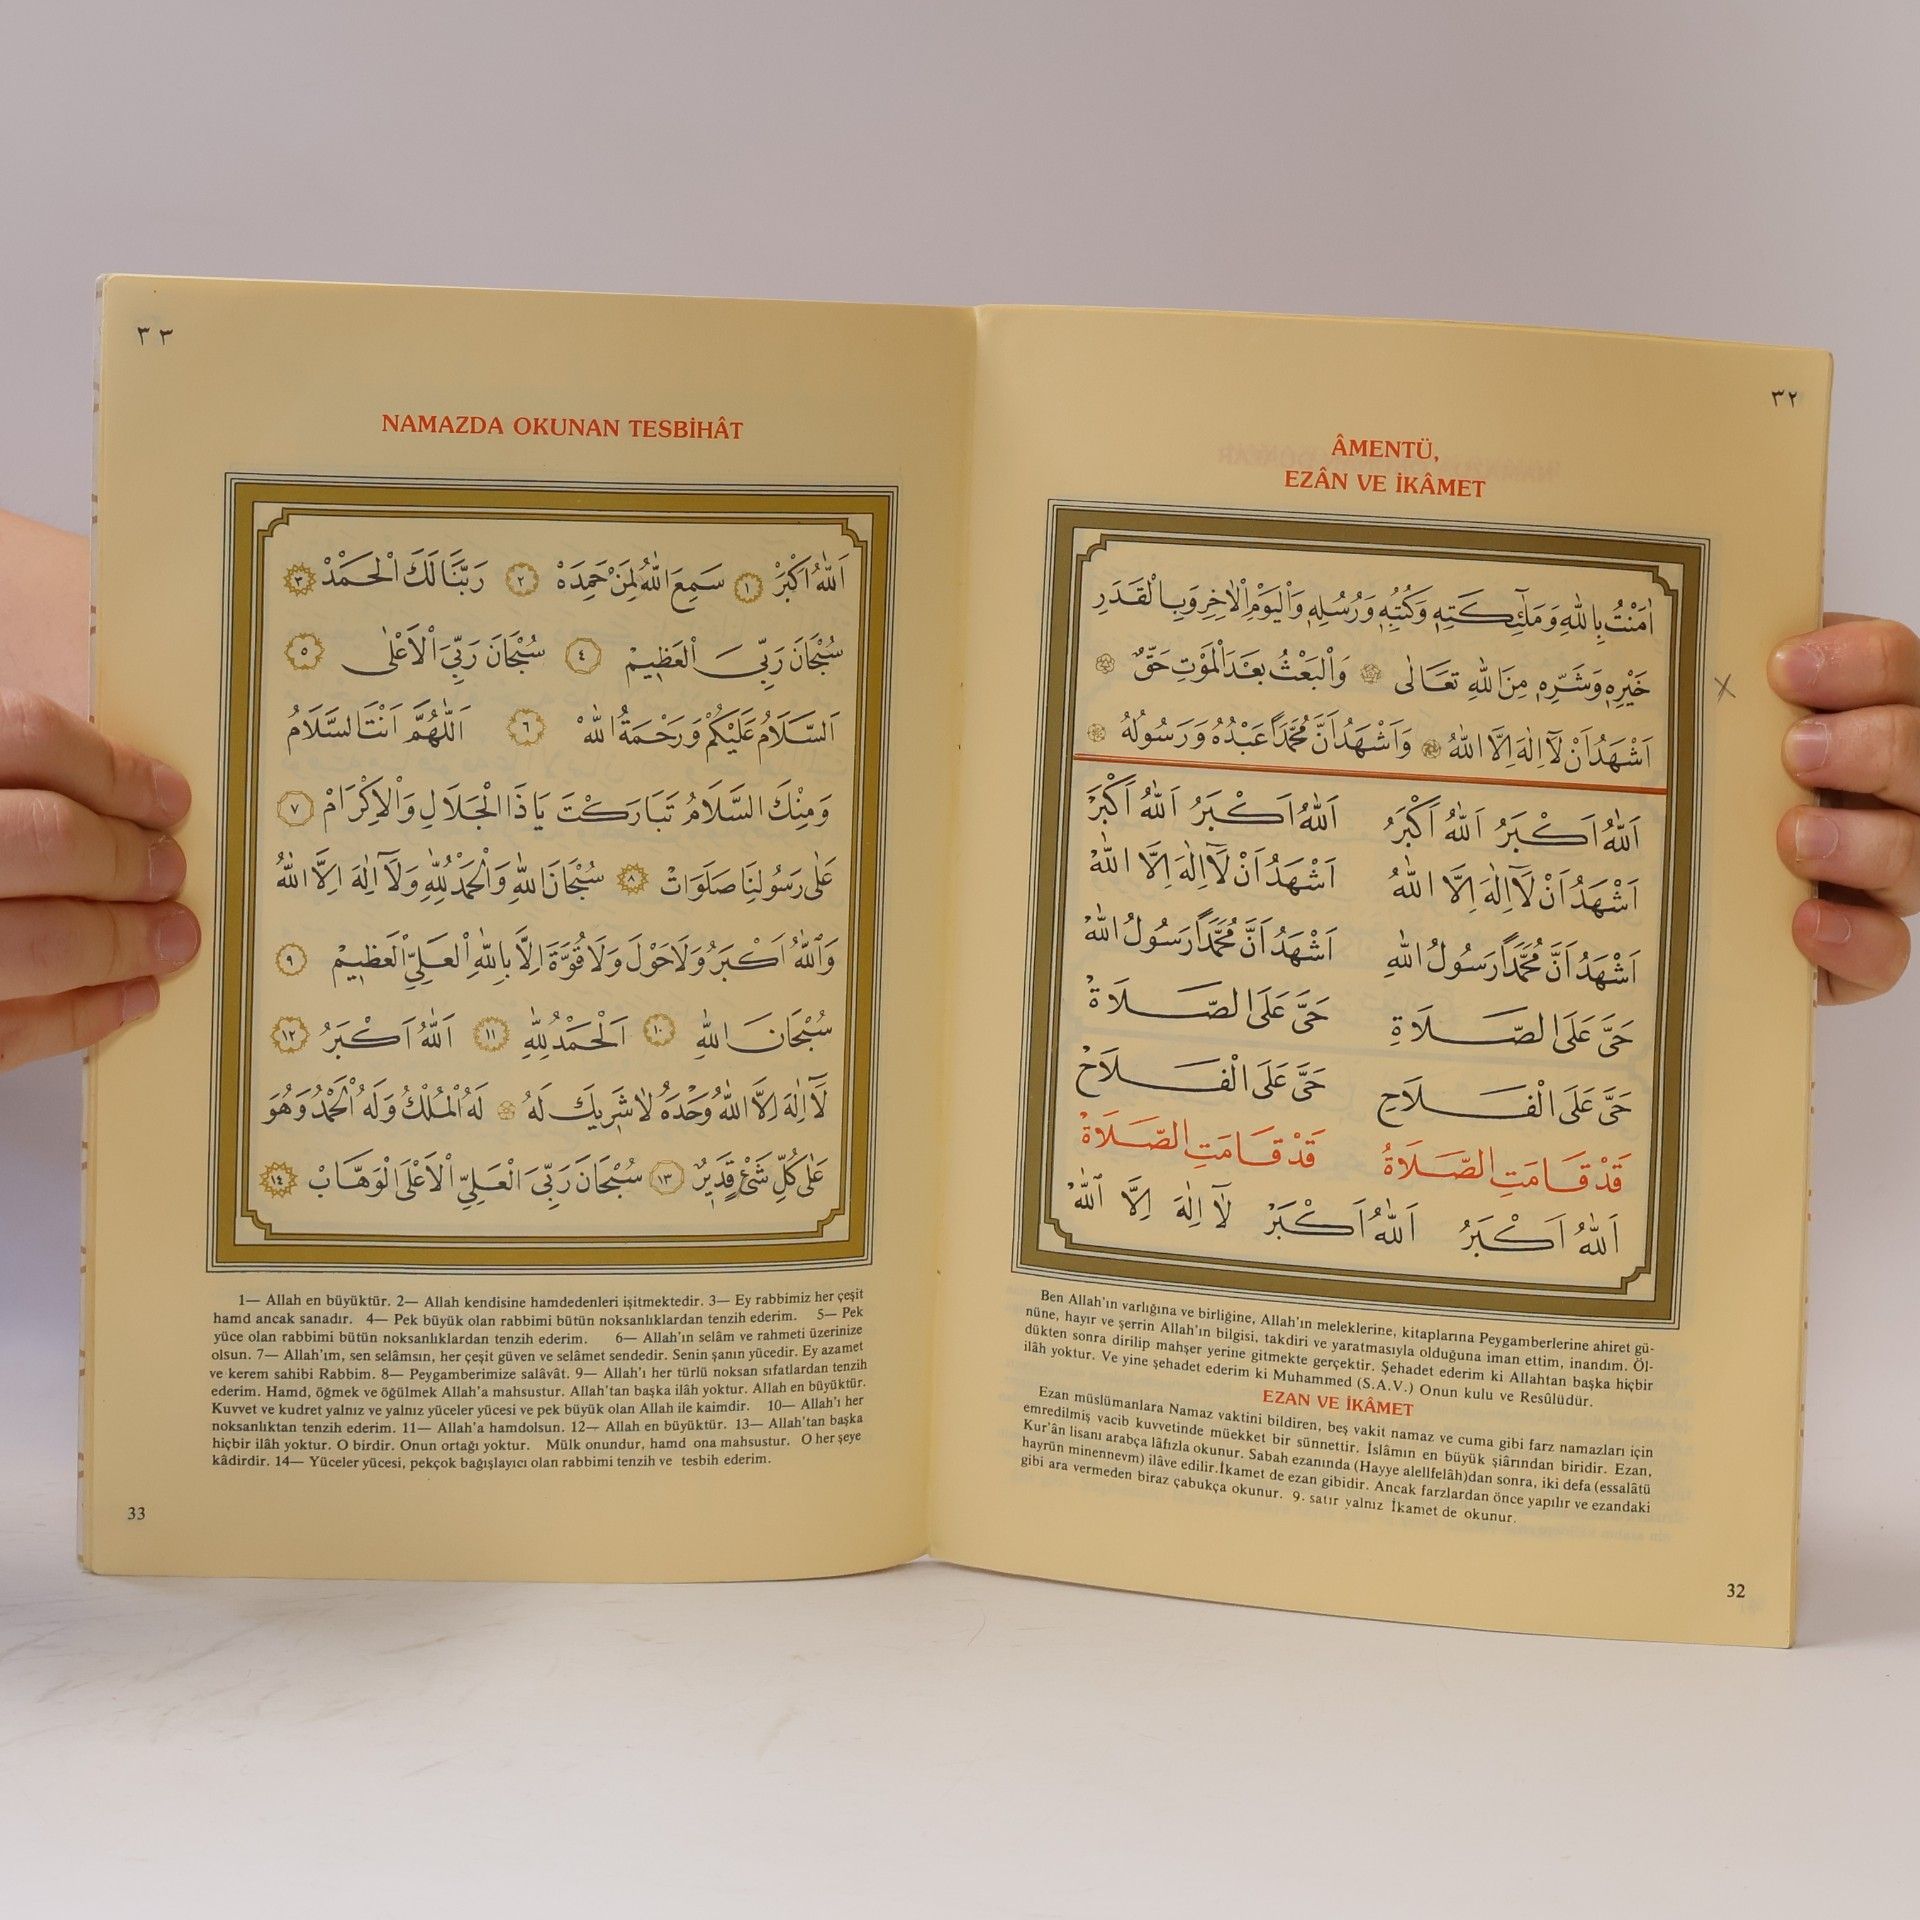 ٣٢
ÂMENTÜ,
EZÂN VE İKÂMET
اٰمَنْتُ بِاللّٰهِ وَمَلٰٓئِكَتِهٖ وَكُتُبِهٖ وَرُسُلِهٖ وَالْيَوْمِ الْاٰخِرِ وَبِالْقَدَرِ
خَيْرِهٖ وَشَرِّهٖ مِنَ اللّٰهِ تَعَالٰى وَالْبَعْثُ بَعْدَ الْمَوْتِ حَقٌّ
اَشْهَدُ اَنْ لَٓا اِلٰهَ اِلَّا اللّٰهُ وَاَشْهَدُ اَنَّ مُحَمَّداً عَبْدُهُ وَرَسُولُهُ
اَللّٰهُ اَكْبَرُ اَللّٰهُ اَكْبَرُ اَللّٰهُ اَكْبَرُ اَللّٰهُ اَكْبَرْ
اَشْهَدُ اَنْ لَٓا اِلٰهَ اِلَّا اللّٰهُ اَشْهَدُ اَنْ لَٓا اِلٰهَ اِلَّا اللّٰهْ
اَشْهَدُ اَنَّ مُحَمَّداً رَسُولُ اللّٰهِ اَشْهَدُ اَنَّ مُحَمَّداً رَسُولُ اللّٰهْ
حَىَّ عَلَى الصَّلَاةِ حَىَّ عَلَى الصَّلَاةْ
حَىَّ عَلَى الْفَلَاحِ حَىَّ عَلَى الْفَلَاحْ
قَدْ قَامَتِ الصَّلَاةُ قَدْ قَامَتِ الصَّلَاةْ
اَللّٰهُ اَكْبَرُ اَللّٰهُ اَكْبَرْ لَٓا اِلٰهَ اِلَّا اللّٰهْ
Ben Allah'ın varlığına ve birliğine, Allah'ın meleklerine, kitaplarına Peygamberlerine ahiret gü-
nüne, hayır ve şerrin Allah'ın bilgisi, takdiri ve yaratmasıyla olduğuna iman ettim, inandım. Öl-
dükten sonra dirilip mahşer yerine gitmekte gerçektir. Şehadet ederim ki Allahtan başka hiçbir
ilâh yoktur. Ve yine şehadet ederim ki Muhammed (S.A.V.) Onun kulu ve Resûlüdür.
EZAN VE İKÂMET
Ezan müslümanlara Namaz vaktini bildiren, beş vakit namaz ve cuma gibi farz namazları için
emredilmiş vacib kuvvetinde müekket bir sünnettir. İslâmın en büyük şiârından biridir. Ezan,
Kur'ân lisanı arabça lâfızla okunur. Sabah ezanında (Hayye alellfelâh)dan sonra, iki defa (essalâtü
hayrün minennevm) ilâve edilir.İkamet de ezan gibidir. Ancak farzlardan önce yapılır ve ezandaki
gibi ara vermeden biraz çabukça okunur. 9. satır yalnız İkamet de okunur.
32
٣٣
NAMAZDA OKUNAN TESBİHÂT
اَللّٰهُ اَكْبَرْ ١ سَمِعَ اللّٰهُ لِمَنْ حَمِدَهْ ٢ رَبَّنَا لَكَ الْحَمْدْ ٣
سُبْحَانَ رَبِّىَ الْعَظٖيمْ ٤ سُبْحَانَ رَبِّىَ الْاَعْلٰى ٥
اَلسَّلَامُ عَلَيْكُمْ وَرَحْمَةُ اللّٰهْ ٦ اَللّٰهُمَّ اَنْتَ السَّلَامُ
وَمِنْكَ السَّلَامُ تَبَارَكْتَ يَاذَا الْجَلَالِ وَالْاِكْرَامْ ٧
عَلٰى رَسُولِنَا صَلَوَاتْ ٨ سُبْحَانَ اللّٰهِ وَالْحَمْدُ لِلّٰهِ وَلَٓا اِلٰهَ اِلَّا اللّٰهُ
وَاللّٰهُ اَكْبَرُ وَلَا حَوْلَ وَلَا قُوَّةَ اِلَّا بِاللّٰهِ الْعَلِىِّ الْعَظٖيمْ ٩
سُبْحَانَ اللّٰهِ ١٠ اَلْحَمْدُ لِلّٰهِ ١١ اَللّٰهُ اَكْبَرُ ١٢
لَٓا اِلٰهَ اِلَّا اللّٰهُ وَحْدَهُ لَا شَرٖيكَ لَهُ لَهُ الْمُلْكُ وَلَهُ الْحَمْدُ وَهُوَ
عَلٰى كُلِّ شَىْءٍ قَدٖيرٌ ١٣ سُبْحَانَ رَبِّىَ الْعَلِىِّ الْاَعْلَى الْوَهَّابْ ١٤
1— Allah en büyüktür. 2— Allah kendisine hamdedenleri işitmektedir. 3— Ey rabbimiz her çeşit
hamd ancak sanadır. 4— Pek büyük olan rabbimi bütün noksanlıklardan tenzih ederim. 5— Pek
yüce olan rabbimi bütün noksanlıklardan tenzih ederim. 6— Allah'ın selâm ve rahmeti üzerinize
olsun. 7— Allah'ım, sen selâmsın, her çeşit güven ve selâmet sendedir. Senin şanın yücedir. Ey azamet
ve kerem sahibi Rabbim. 8— Peygamberimize salâvât. 9— Allah'ı her türlü noksan sıfatlardan tenzih
ederim. Hamd, öğmek ve öğülmek Allah'a mahsustur. Allah'tan başka ilâh yoktur. Allah en büyüktür.
Kuvvet ve kudret yalnız ve yalnız yüceler yücesi ve pek büyük olan Allah ile kaimdir. 10— Allah'ı her
noksanlıktan tenzih ederim. 11— Allah'a hamdolsun. 12— Allah en büyüktür. 13— Allah'tan başka
hiçbir ilâh yoktur. O birdir. Onun ortağı yoktur. Mülk onundur, hamd ona mahsustur. O her şeye
kâdirdir. 14— Yüceler yücesi, pekçok bağışlayıcı olan rabbimi tenzih ve tesbih ederim.
33